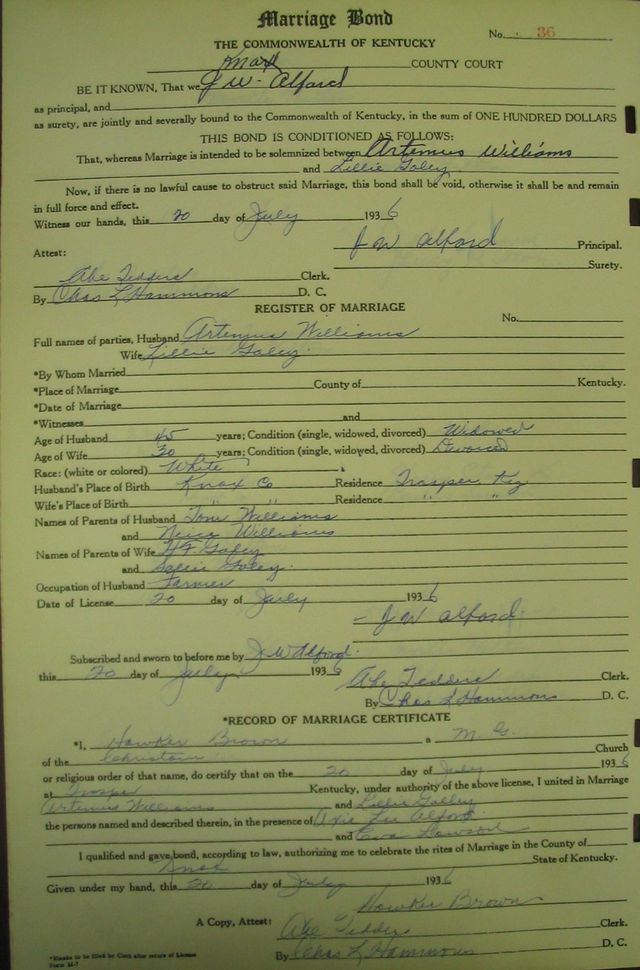 Marriage Bond
No. 36
THE COMMONWEALTH OF KENTUCKY
Knox COUNTY COURT
BE IT KNOWN, That we J W. Alford
as principal, and
as surety, are jointly and severally bound to the Commonwealth of Kentucky, in the sum of ONE HUNDRED DOLLARS
THIS BOND IS CONDITIONED AS FOLLOWS:
That, whereas Marriage is intended to be solemnized between Artemus Williams
and Lillie Goley
Now, if there is no lawful cause to obstruct said Marriage, this bond shall be void, otherwise it shall be and remain
in full force and effect.
Witness our hands, this 20 day of July 1936
J W Alford Principal.
Attest:
Surety.
Abe Tedders Clerk.
By Chas L Hammons D. C.
REGISTER OF MARRIAGE
No.
Full names of parties, Husband Artemus Williams
Wife Lillie Goley.
*By Whom Married
*Place of Marriage County of Kentucky.
*Date of Marriage
*Witnesses and
Age of Husband 45 years; Condition (single, widowed, divorced) Widowed
Age of Wife 30 years; Condition (single, widowed, divorced) Divorced
Race: (white or colored) White
Husband's Place of Birth Knox Co Residence Trosper Ky
Wife's Place of Birth " " Residence " "
Names of Parents of Husband Tom Williams
and Williams
Names of Parents of Wife Goley
and Sallie Goley.
Occupation of Husband Farmer
Date of License 20 day of July 1936
J W Alford.
Subscribed and sworn to before me by J W Alford.
this 20 day of July 1936
Abe Tedders Clerk.
By Chas L Hammons D. C.
*RECORD OF MARRIAGE CERTIFICATE
*I, Hawker Brown a M. G.
of the Christain Church
or religious order of that name, do certify that on the 20 day of July 1936
at Trosper Kentucky, under authority of the above license, I united in Marriage
Artemus Williams and Lillie Golley
the persons named and described therein, in the presence of Alford
and Eva Lawson
I qualified and gave bond, according to law, authorizing me to celebrate the rites of Marriage in the County of
Knox State of Kentucky.
Given under my hand, this 20 day of July 1936
Hawker Brown
A Copy, Attest: Abe Tedders Clerk.
By Chas L Hammons D. C.
*Blanks to be filled by Clerk after return of License
Form M-7